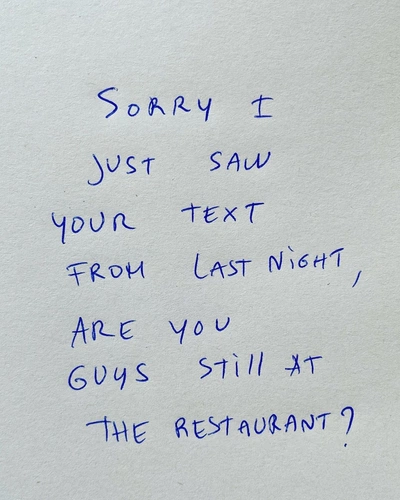 SORRY I
JUST SAW
YOUR TEXT
FROM LAST NIGHT,
ARE YOU
GUYS Still AT
THE RESTAURANT?